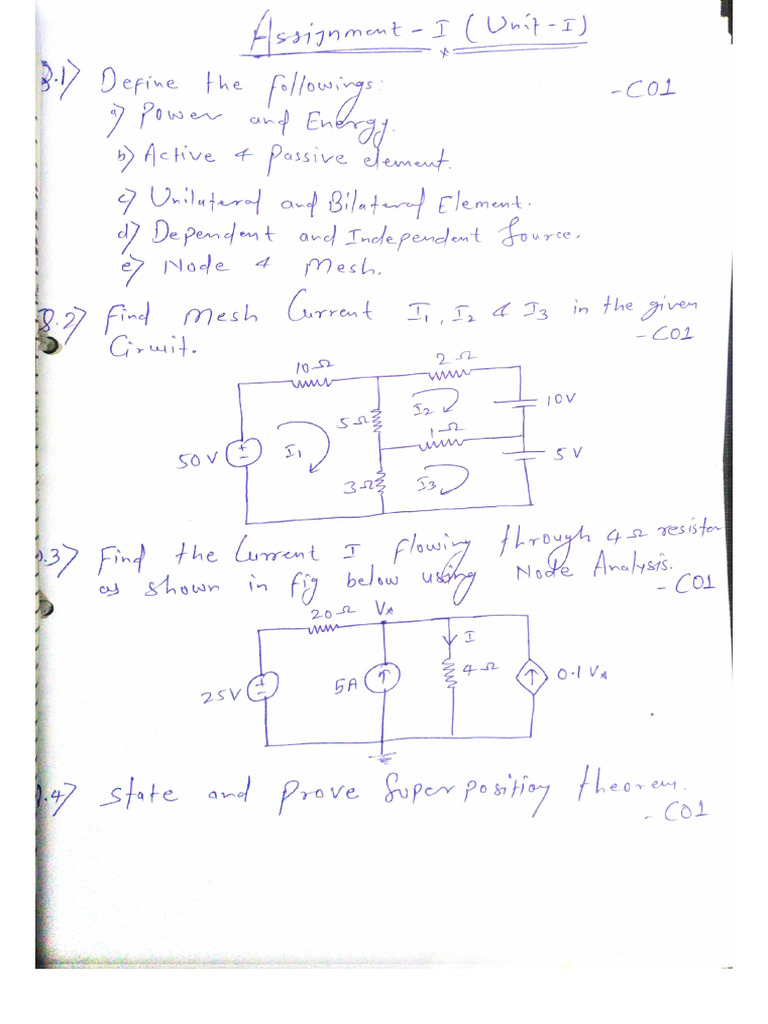 Assignment - I (Unit-I)
Q.1) Define the followings: - CO1
a) Power and Energy.
b) Active & Passive element.
c) Unilateral and Bilateral Element.
d) Dependent and Independent Source.
e) Node & Mesh.
Q.2) Find Mesh Current I1, I2 & I3 in the given
Circuit. - CO1
10Ω 2Ω
5Ω I2 10V
50V I1 1Ω
3Ω I3 5V
Q.3) Find the Current I flowing through 4Ω resistor
as shown in fig below using Node Analysis.
- CO1
20Ω VA
I
25V 5A 4Ω 0.1VA
Q.4) State and Prove Superposition theorem.
- CO1